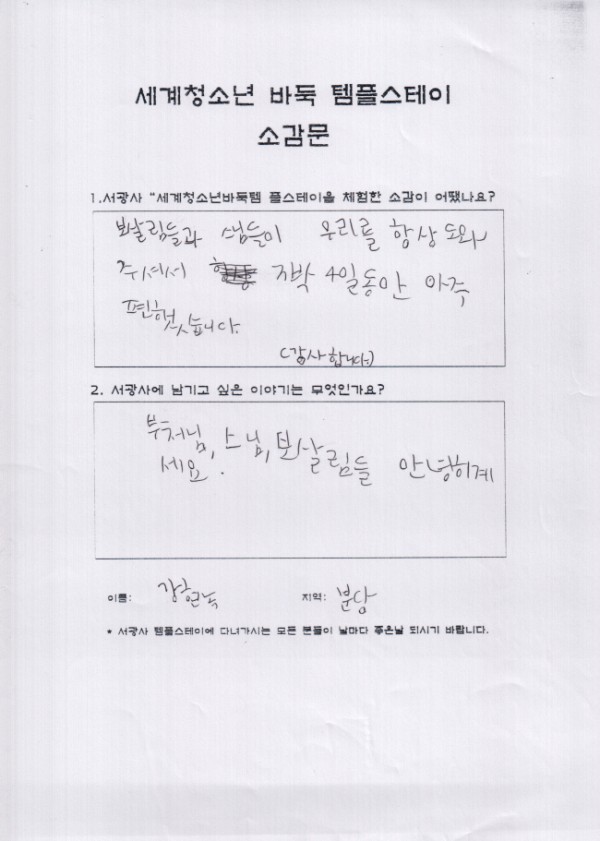 세계청소년 바둑 템플스테이
소감문
1.서광사 “세계청소년바둑템 플스테이을 체험한 소감이 어땠나요?
뽀살림들과 스님들이 우리를 항상 도와
주셔서 3박 4일동안 아주
편헀습니다.
(감사합니다)
2. 서광사에 남기고 싶은 이야기는 무엇인가요?
부처님, 스님, 보살림들 안녕히계
세요.
이름: 지역: 분당
* 서광사 템플스테이에 다녀가시는 모든 분들이 날마다 좋은날 되시기 바랍니다.